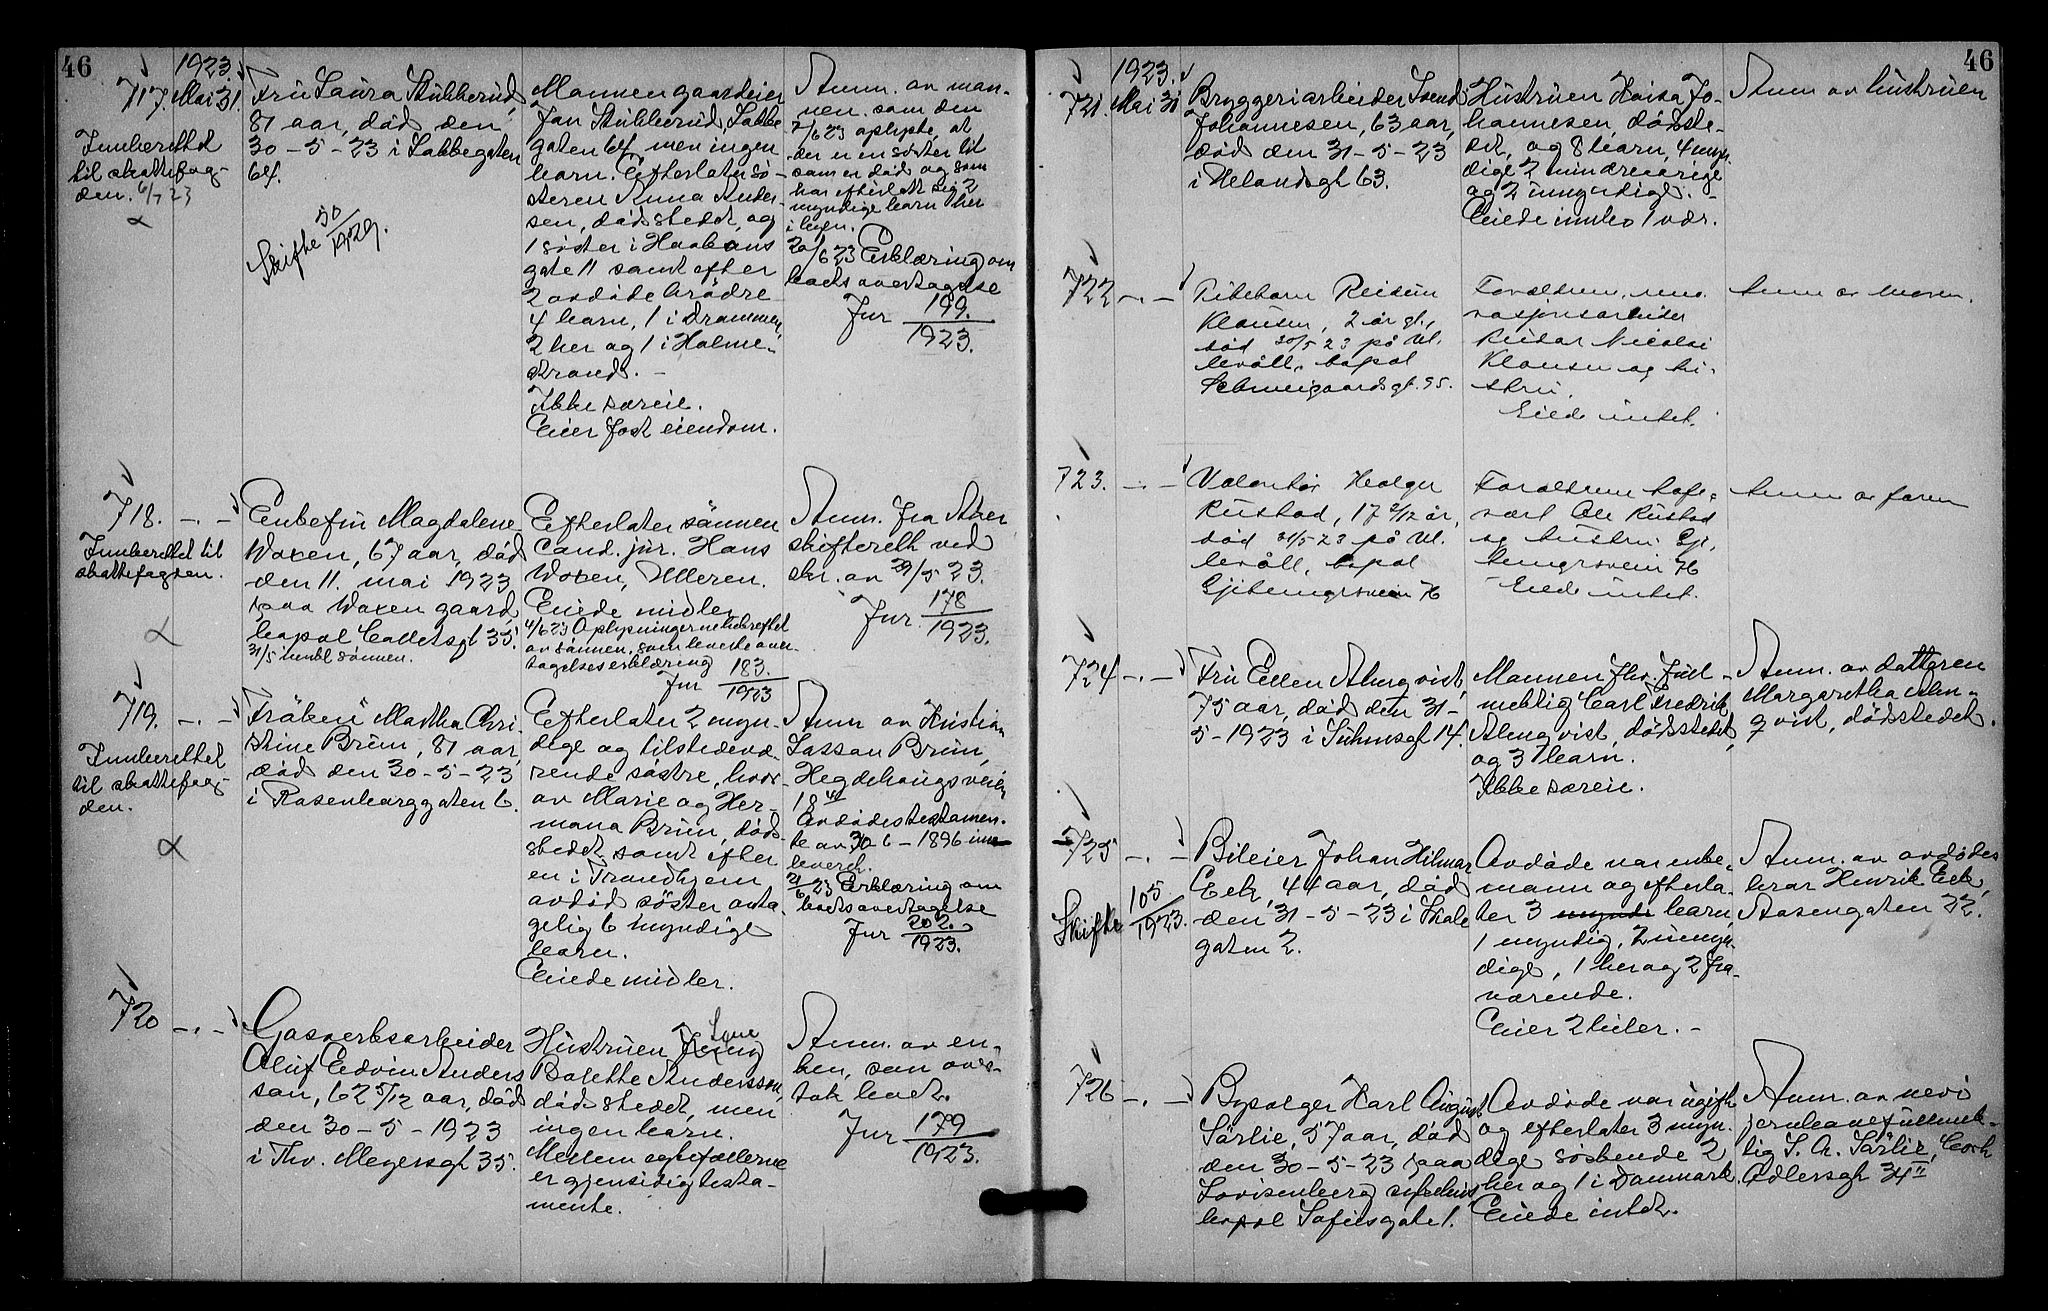 46
717.
1923.
Mai 31.
Indberettet
til skattefog-
den. 6/7 23
Fru Laura Stubberud,
81 aar, død den
30-5-23 i Gabbegaten
64.
Skifte 50/1929.
Manden gaardeier
Jan Stubberud, Gabbe
gaten 64 men ingen
barn. Efterlater sø-
steren Anna Ander-
sen, dødsstedet, og
1 søster i Haakons
gate 11 samt efter
2 avdøde brødre
4 barn, 1 i Drammen,
2 her og 1 i Holme-
strand. -
Ikke særeie.
Eier fast eiendom.
Anm. av man-
nen som den
2/6 23 oplyste, at
der er en søster til
som er død og som
har efterlatt sig 2
myndige barn her
i byen.
20/6 23 Erklæring om
boets overtagelse
Jnr 199./1923.
718. -.-
Indberettet til
skattefogden.
Enkefru Magdalene
Woxen, 67 aar, død
den 11. mai 1923
paa Woxen gaard,
bopæl Colletsgt 35.
31/5 sønnen.
Efterlater sønnen
Cand. jur. Hans
Woxen, Ulleren.
Eiede midler
4/6 23 Oplysningerne bekreftet
av sønnen, som leverte over-
tagelseserklæring
Jnr 183./1923
Anm. fra Aker
skifterett ved
skr. av 29/5 23.
Jnr. 178/1923.
719. -.-
Indberettet
til skattefog-
den.
Frøken Martha Chri-
stine Brun, 81 aar,
død den 30-5-23
i Rosenborggaten 6.
Efterlater 2 myn-
dige og tilstedevæ-
rende søstre, hvor-
av Marie og Her-
mana Brun, døds-
stedet samt efter
en i Trondhjem
avdød søster anta-
gelig 6 myndige
barn.
Eiede midler.
Anm av Kristian
Lassan Brun,
Hegdehaugsveien
18
Avdødes testamen-
te av 30-6-1896 inn-
leveret.
21/6 23 Erklæring om
boets overtagelse
Jnr 202./1923.
720 -.-
Gasverksarbeider
Oluf Edvin Anders
son, 62 5/12 aar, død
den 30-5-1923
i Thv. Meyersgt 35.
Hustruen
Bolette Andersson,
dødsstedet, men
ingen barn.
Mellem egtefællerne
er gjensidig testa-
mente.
Anm. av en-
ken, som over-
tok boet.
Jnr 179/1923.
46
721.
1923.
Mai 31
Bryggeriarbeider Svend
Johannesen, 63 aar,
død den 31-5-23
i Helandsgt 63.
Hustruen Kaisa Jo-
hannesen, dødste-
det, og 8 barn, 4 myn-
dige 2 mindreaarige
og 2 umyndige. -
Eiede innbo 1 vær.
Anm av hustruen
722 -.-
Pikebarn Reidun
Klausen, 2 år gl.,
død 30/5 23 på Ul.
levåll, bopæl
Schweigaardsgt. 95.
Foreldrene, reno-
vasjonsarbeider
Reidar Nicolai
Klausen og hu-
stru.
Eiede intet.
Anm av moren.
723. -.-
Volontør Holger
Rustad, 17 2/12 år,
død 31/5 23 på Ul.
levåll, bopæl
Gjetemyrsveien 76
Foreldrene kafe-
vært Ole Rustad
og hustru Gje-
temyrsveien 76
Eiede intet.
Anm av faren
724 -.-
Fru Ellen Almqvist,
75 aar, død den 31-
5-1923 i Suhmsgt 14.
Mannen fhv. full-
mektig Carl Fredrik
Almqvist, dødsstedet,
og 3 barn.
Ikke særeie.
Anm. av datteren
Margaretha Alm-
qvist, dødsstedet.
725 -.-
Skifte 105/1923.
Bileier Johan Hilmar
Eek, 44 aar, død
den 31-5-23 i Skale
gaten 2.
Avdøde var enke-
mann og efterla-
ter 3 mynd barn,
1 myndig, 2 umyn-
dige, 1 her og 2 fra-
værende.
Eier 2 biler. -
Anm. av avdødes
bror Henrik Eek,
Aasengaten 22.
726 -.-
Byselger Karl August
Sørlie, 57 aar, død
den 30-5-23 paa
Lovisenberg sykehus
bopæl Sofiesgate 1.
Avdøde var ugift
og efterlater 3 myn-
dige søskende 2
her og 1 i Danmark.
Eiede intet.
Anm. av nevø
jernbanefullmek-
tig S. A. Sørlie, Cort
Adlersgt 34 II